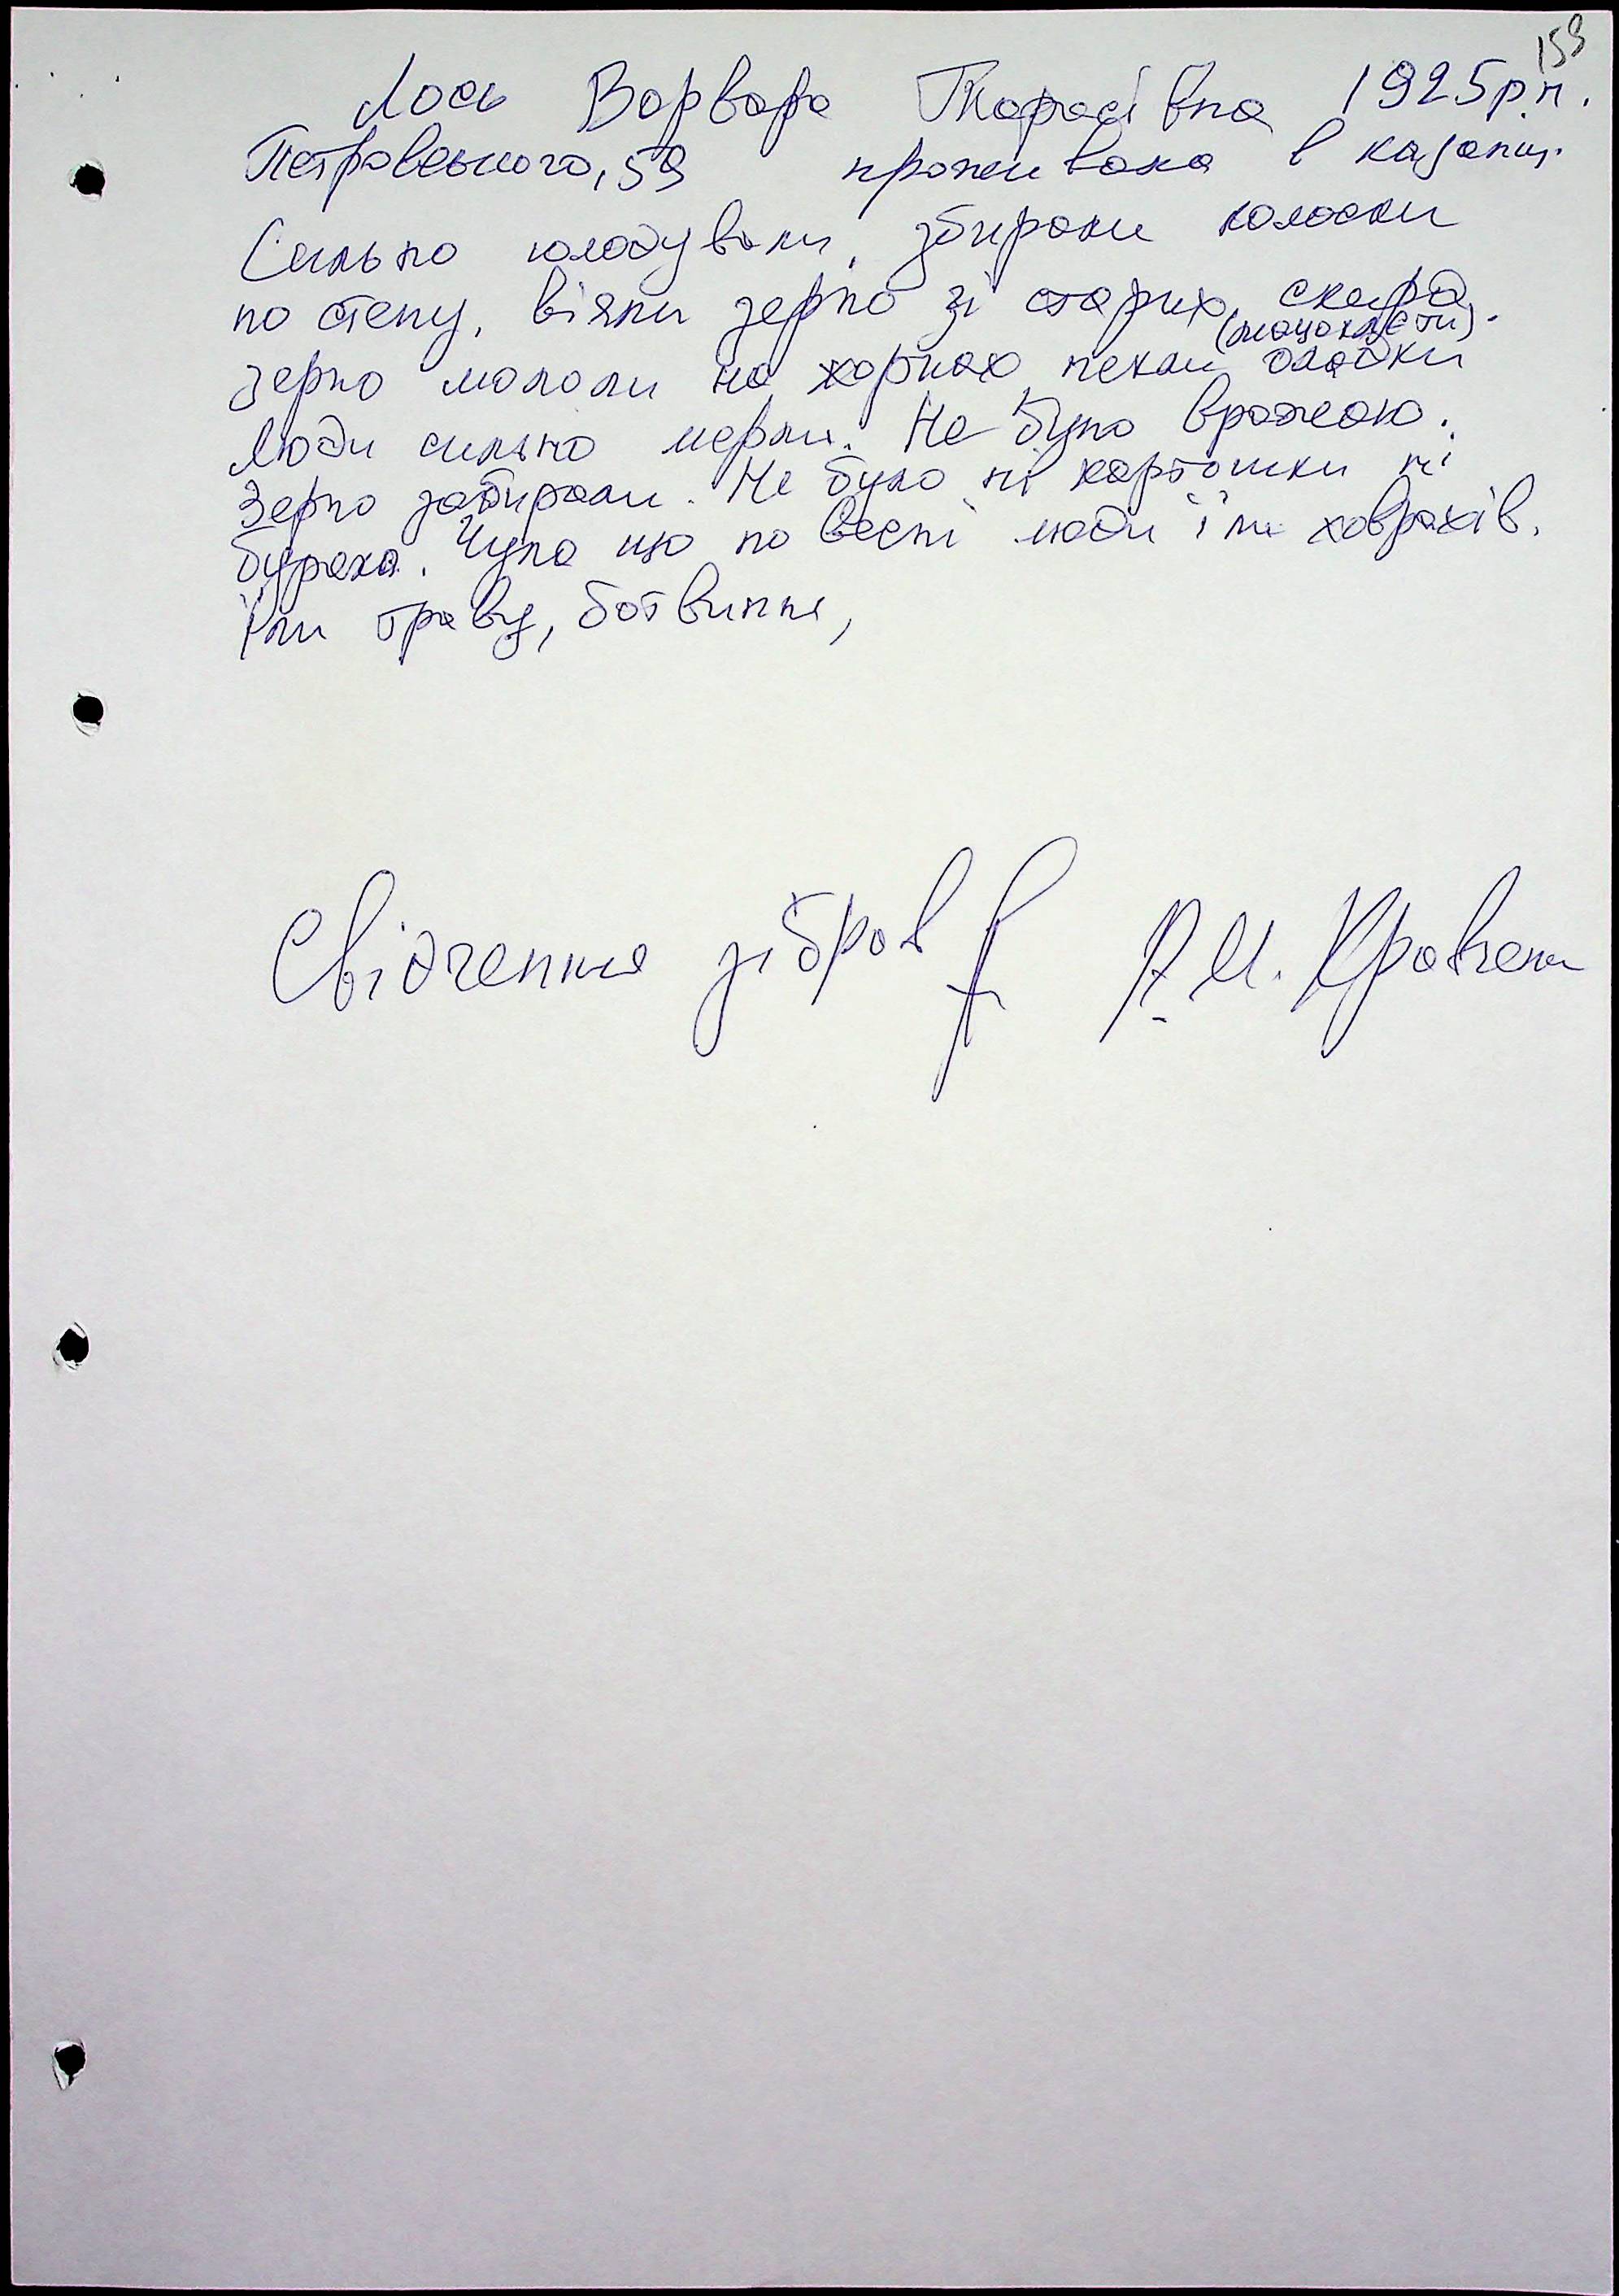 159
Лось Варвара Тарасівна 1925р.н.
Петровського, 59 проживала в
Сильно голодували, збирали колоски
по степу, віяли зерно зі старих скирд.
Зерно мололи на жорнах пекли оладки
Люди сильно мерли. Не було врожаю.
Зерно забирали. Не було ні картошки ні
буряка. Чула що по весні люди їли ховрахів.
Їли траву, ботвиння,
Свідчення зібрав А.М. Кравчен